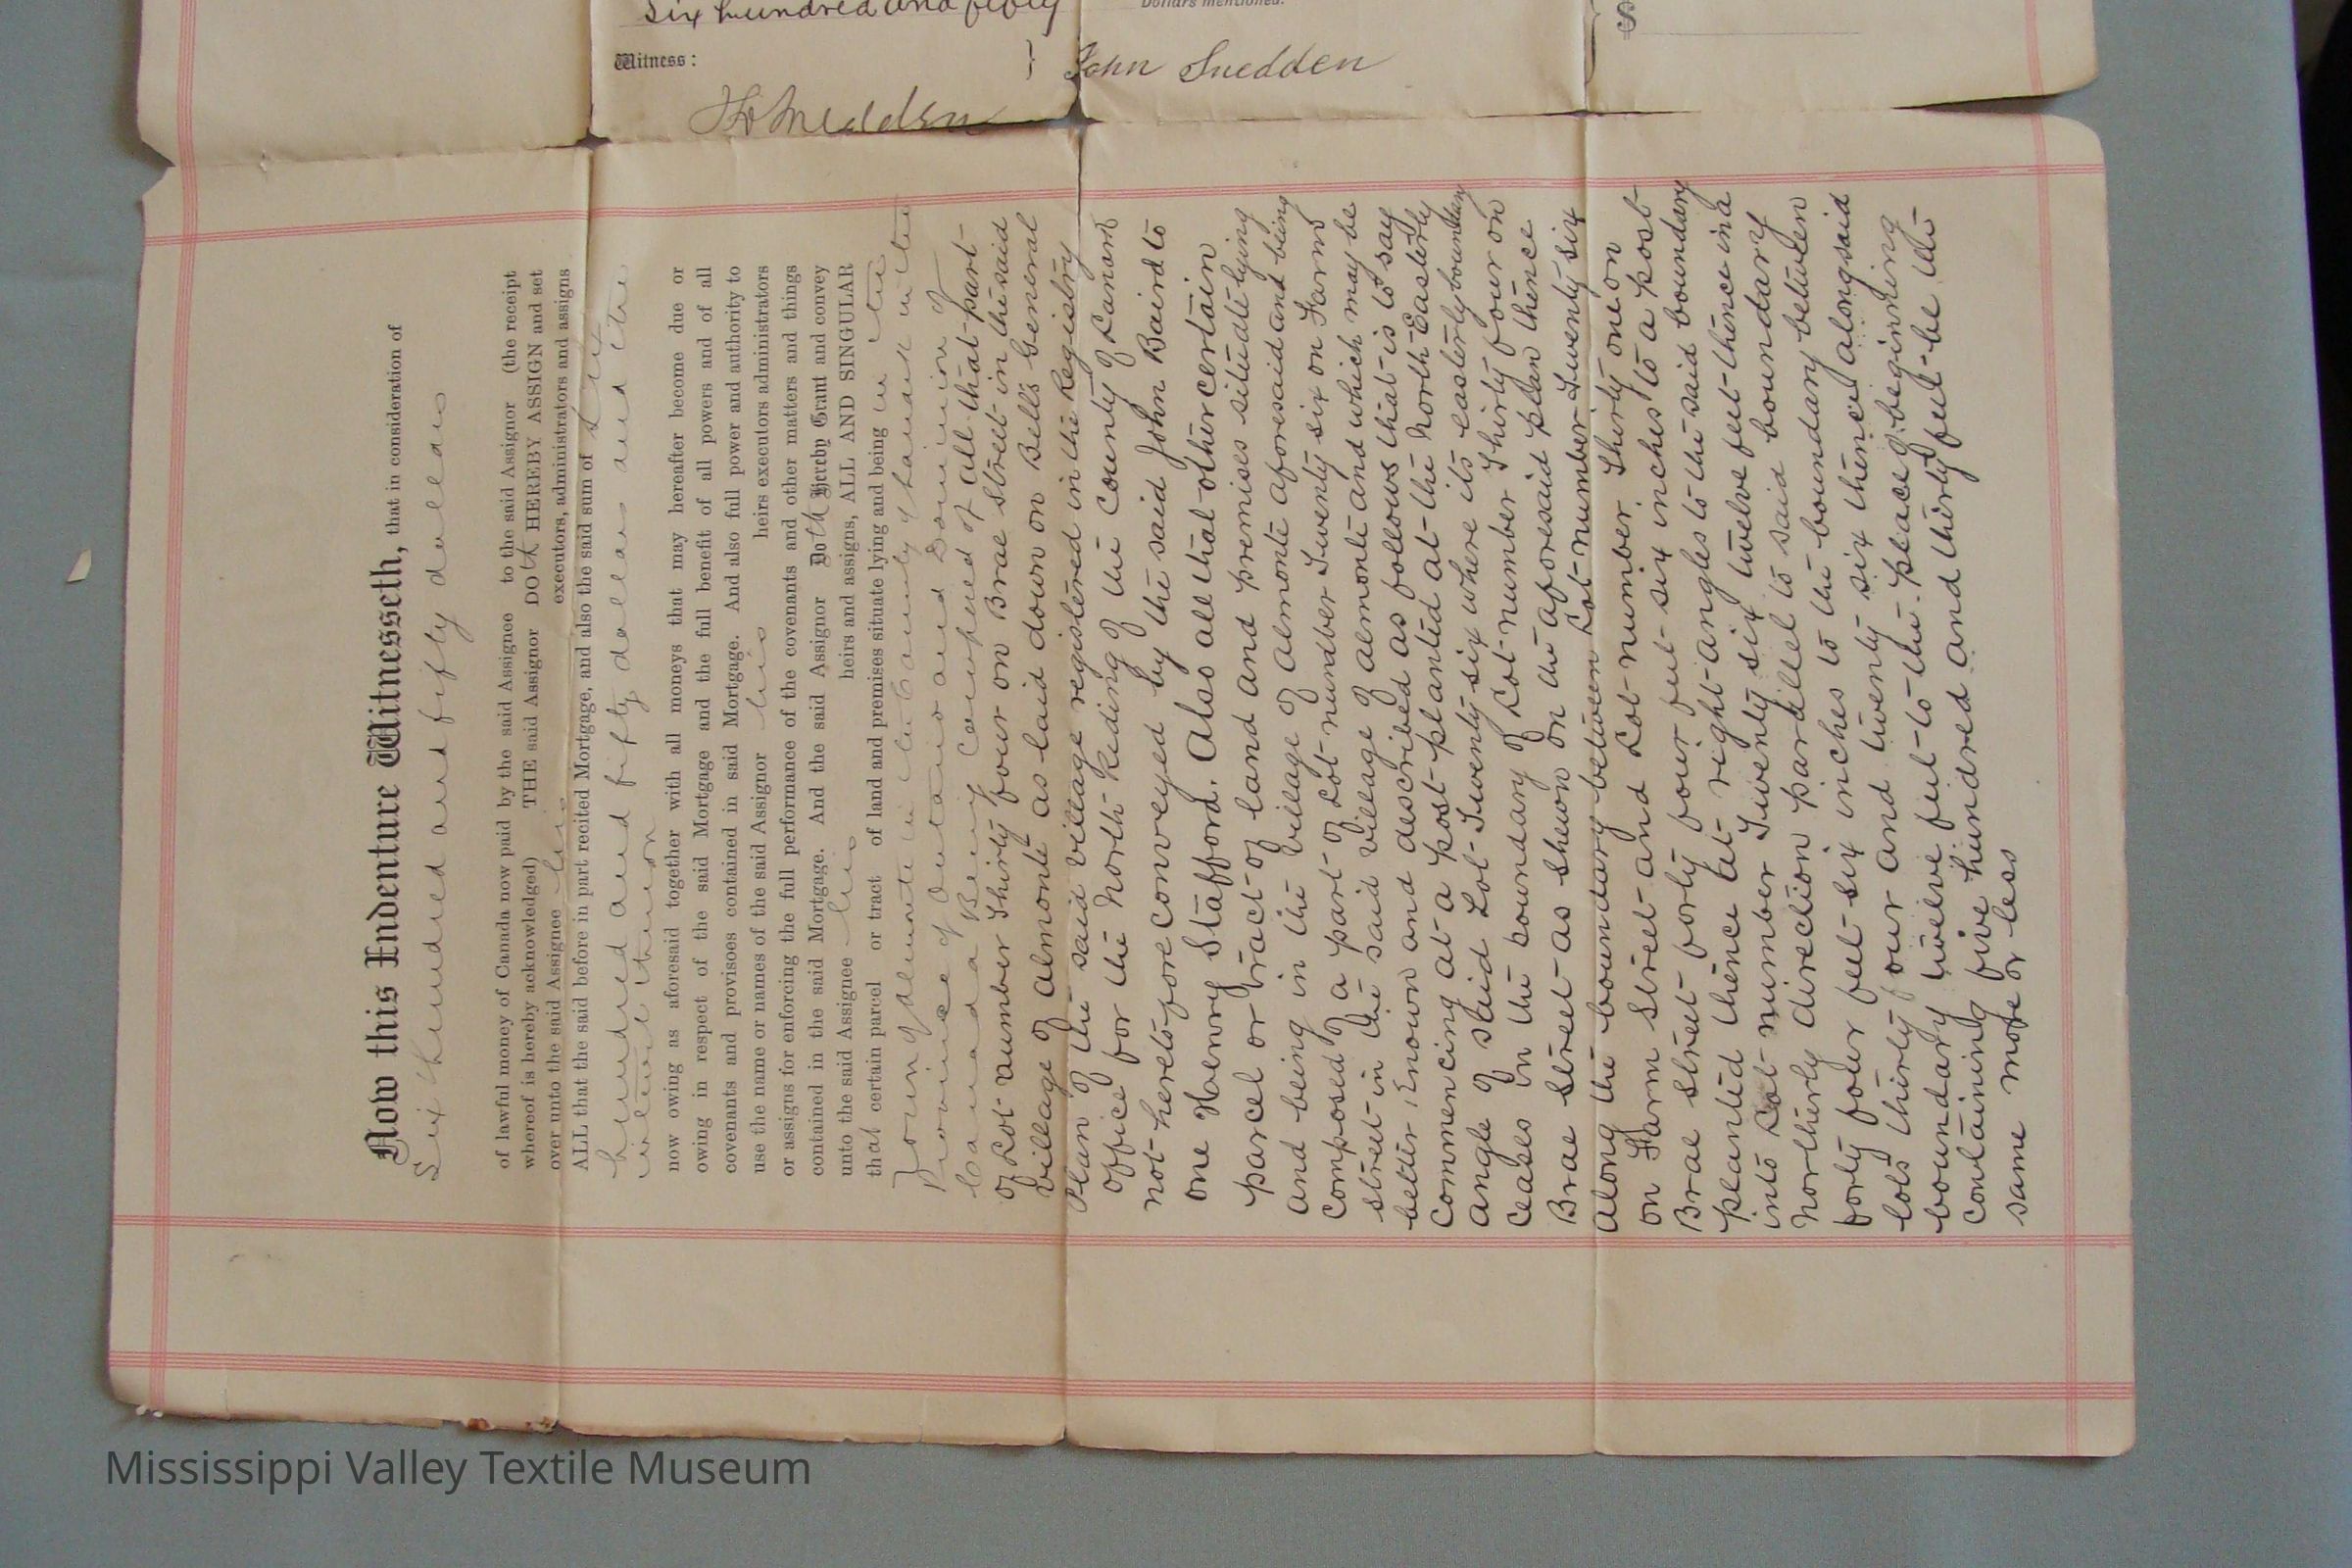 Six hundred and fifty
Dollars mentioned.
$
Witness:
John Snedden
Now this Indenture Witnesseth, that in consideration of
Six hundred and fifty dollars
of lawful money of Canada now paid by the said Assignee to the said Assignor (the receipt
whereof is hereby acknowledged) THE said Assignor DOth HEREBY ASSIGN and set
over unto the said Assignee his executors, administrators and assigns
ALL that the said before in part recited Mortgage, and also the said sum of Six
hundred and fifty dollars and the
interest thereon
now owing as aforesaid together with all moneys that may hereafter become due or
owing in respect of the said Mortgage and the full benefit of all powers and of all
covenants and provisoes contained in said Mortgage. And also full power and authority to
use the name or names of the said Assignor his heirs executors administrators
or assigns for enforcing the full performance of the covenants and other matters and things
contained in the said Mortgage. And the said Assignor Doth Hereby Grant and convey
unto the said Assignee his heirs and assigns, ALL AND SINGULAR
that certain parcel or tract of land and premises situate lying and being in the
Town of Almonte in the County of Lanark in the
Province of Ontario and Dominion of
Canada Being Composed of all that part
of Lot number Thirty four on Brae Street in the said
Village of Almonte as laid down on Bell's General
Plan of the said village registered in the Registry
office for the North Riding of the County of Lanark
not heretofore conveyed by the said John Baird to
one Henry Stafford. Also all that other certain
parcel or tract of land and premises situate lying
and being in the Village of Almonte aforesaid and being
Composed of a part of Lot number Twenty six on Farm
street in the said Village of Almonte and which may be
better known and described as follows that is to say
Commencing at a post planted at the North Easterly
angle of said Lot Twenty six where its easterly boundary
ceases on the boundary of Lot number Thirty four on
Brae Street as shewn on the aforesaid plan thence
along the boundary between Lot number Twenty six
on Farm Street and Lot number Thirty one on
Brae Street forty four feet six inches to a post
planted thence at right angles to the said boundary
into Lot number Twenty six twelve feet thence in a
Northerly direction parallel to said boundary
forty four feet six inches to the boundary between
lots thirty four and twenty six thence along said
boundary twelve feet to the place of beginning
containing five hundred and thirty feet be the
same more or less
Mississippi Valley Textile Museum